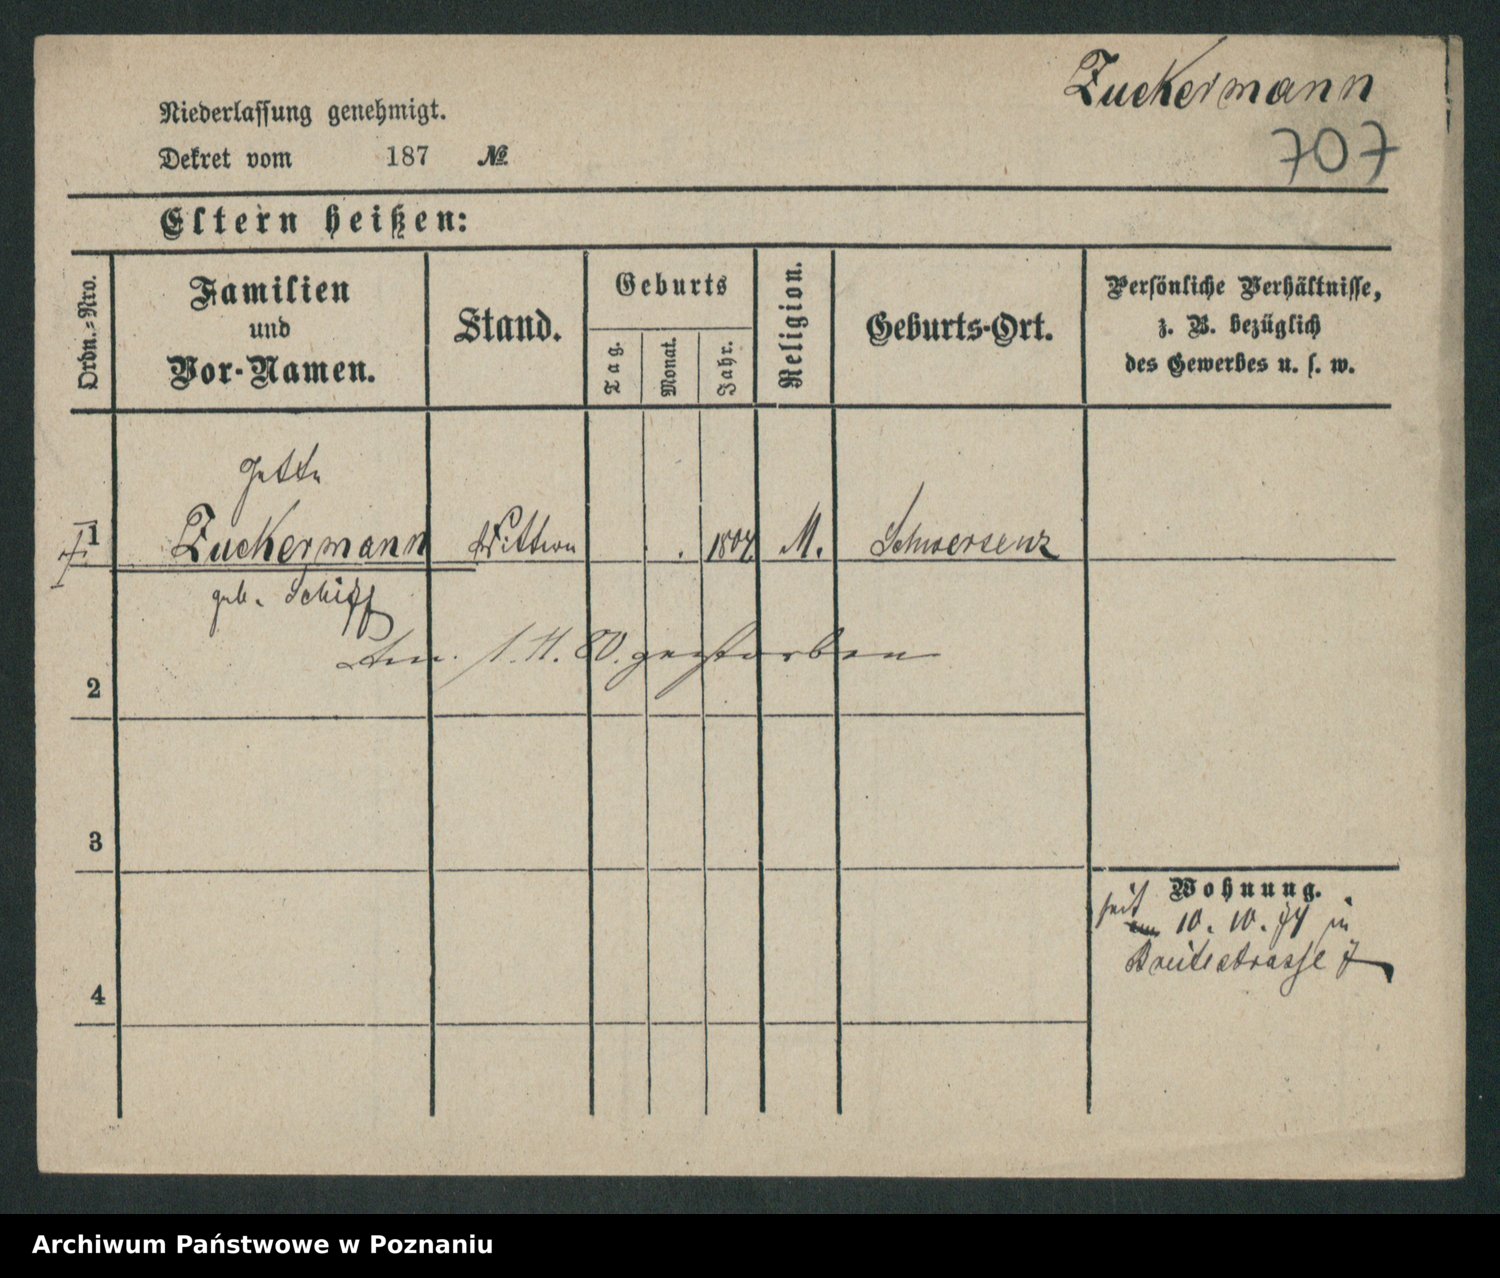 Zuckermann
Niederlassung genehmigt.
707
Dekret vom 187 №
Eltern heißen:
Ordn.=Nro.
Familien
und
Vor-Namen.
Stand.
Geburts
Tag.
Monat.
Jahr.
Religion.
Geburts-Ort.
Persönliche Verhältnisse,
z. B. bezüglich
des Gewerbes u. s. w.
Jette
1 Zuckermann Wittwe M. Schwersenz
geb. Schiff
1. 11. 80. gestorben
2
3
Wohnung.
seit 10. 10. 74 in
Breitestrasse 7
4
Archiwum Państwowe w Poznaniu